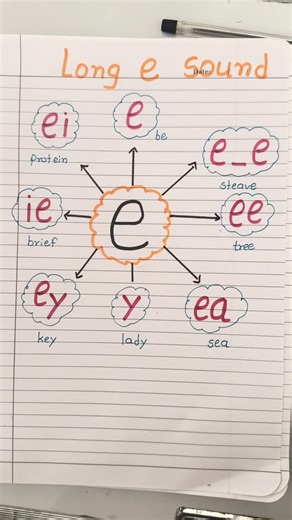 Long e sound
ei
protein
e
be
e_e
steave
ie
brief
e
ee
tree
ey
key
y
lady
ea
sea